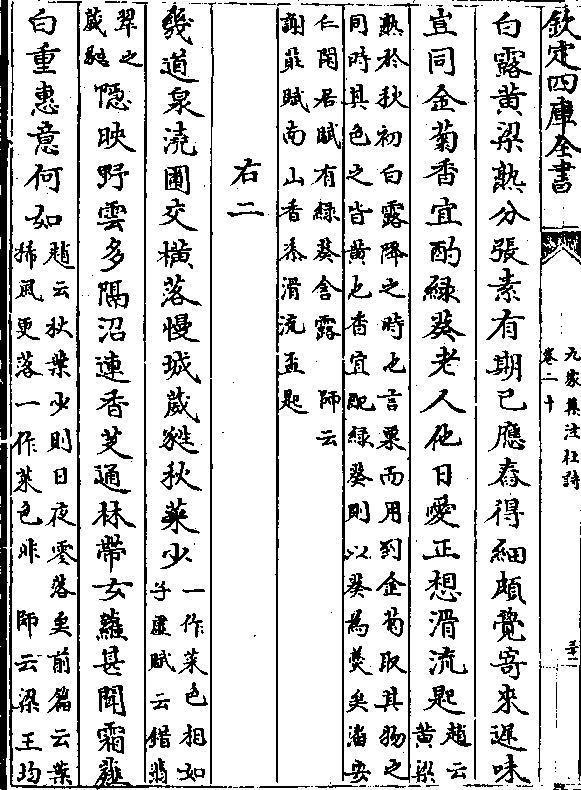 欽定四庫全書
九家集注杜詩
卷二十
白露黄粱熟分張素有期已應舂得細頗覺寄來遲味
豈同金菊香宜酌緑葵老人他日愛正想滑流匙
趙云
黄粱
熟於秋初白露降之時也言粟而用到金菊取其物之
同時其色之皆黄也香宜配緑葵則以葵為羮矣潘安
仁閑居賦有緑葵含露 師云
謝莊賦南山香黍滑流匙
右二
幾道泉澆圃交横落慢坡葳蕤秋葉少
一作菜色相如
子虚賦云錯翡
翠之
葳蕤
隠映野雲多隔沼連香芰通林帶女蘿甚聞霜薤
白重惠意何如
趙云秋葉少則日夜零落矣前篇云葉
稀風更落一作菜色非 師云梁王均